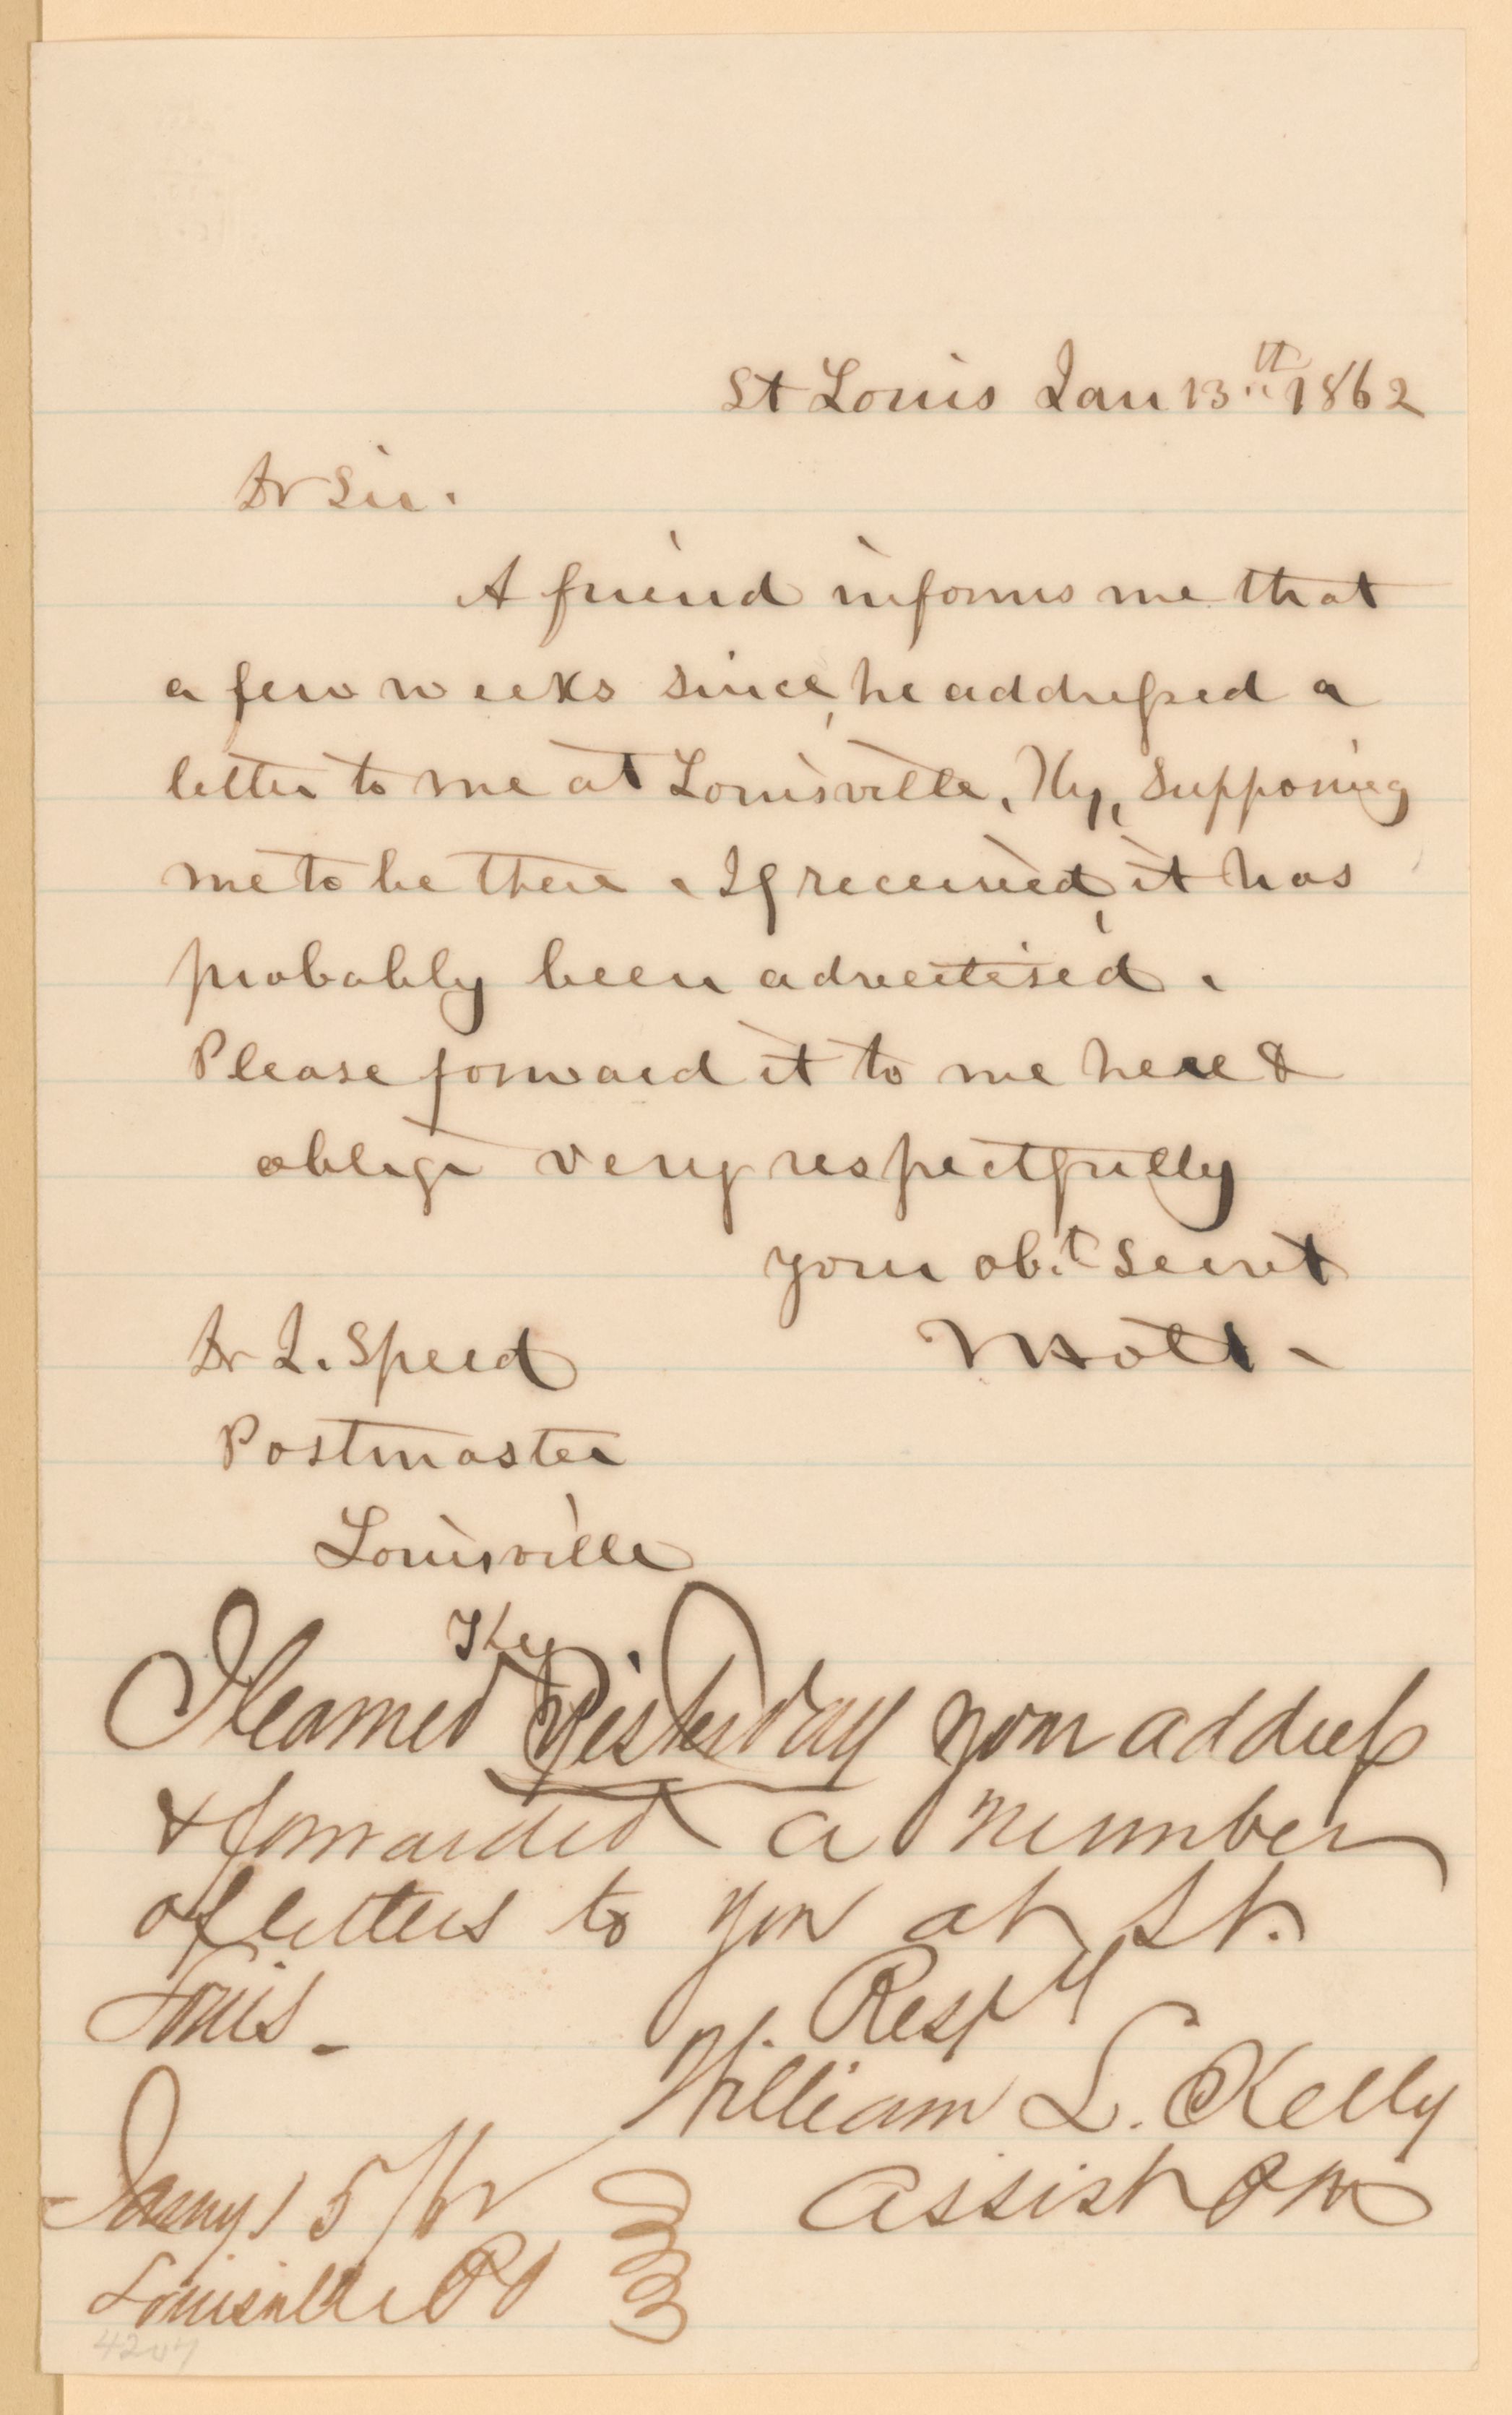 St Louis Jan 13th 1862
Dr Sir.
A friend informs me that
a few weeks since, he addressed a
letter to me at Louisville, Ky, supposing
me to be there. If received, it has
probably been advertised.
Please forward it to me here &
oblige very respectfully
your obt servt
Holt.
Dr J. Speed
Postmaster
Louisville
Ky
I learned Yesterday your address
& forwarded a number
of letters to you at St.
Louis.
Respy
William L. Kelly
Assist P M
Jany 15/62
Louisville PO
4207